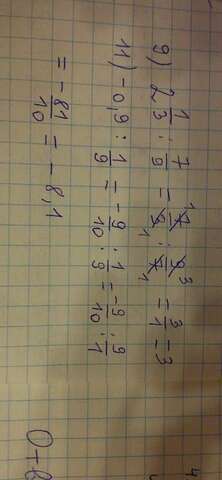 9) 2 1/3 : 7/9 = 7/3 : 7/9 = 3/1 = 3
11) -0,9 : 1/9 = -9/10 : 1/9 = -9/10 : 9/1
= -81/10 = -8,1